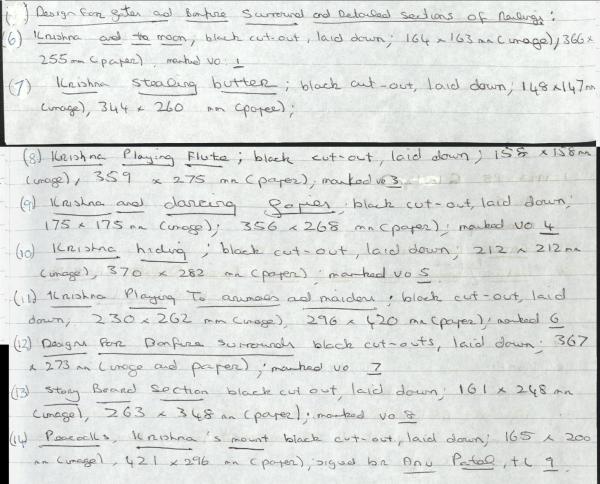 Design for gates and Bonfire Surround and Detailed sections of Railings:
(6) Krishna and the moon, black cut-out, laid down; 164 x 163 mm (image), 366 x
255 mm (paper), marked vo. 1
(7) Krishna stealing butter; black cut-out, laid down; 148 x 147 mm
(image), 344 x 260 mm (paper);
(8) Krishna Playing Flute; black cut-out, laid down; 158 x 158 mm
(image), 359 x 275 mm (paper); marked vo 3
(9) Krishna and dancing Gopies; black cut-out, laid down;
175 x 175 mm (image); 356 x 268 mm (paper); marked vo 4
(10) Krishna hiding; black cut-out, laid down; 212 x 212 mm
(image), 370 x 282 mm (paper); marked vo 5
(11) Krishna Playing To animals and maidens; black cut-out, laid
down, 230 x 262 mm (image), 296 x 420 mm (paper); marked 6
(12) Designs for Bonfire surrounds black cut-outs, laid down; 367
x 273 mm (image and paper); marked vo 7
(13) Story Board Section black cut out, laid down; 161 x 248 mm
(image), 263 x 348 mm (paper); marked vo 8
(14) Peacocks, Krishna's mount black cut-out, laid down; 165 x 200
mm (image), 421 x 296 mm (paper); signed br Anu Patel, t.L 9